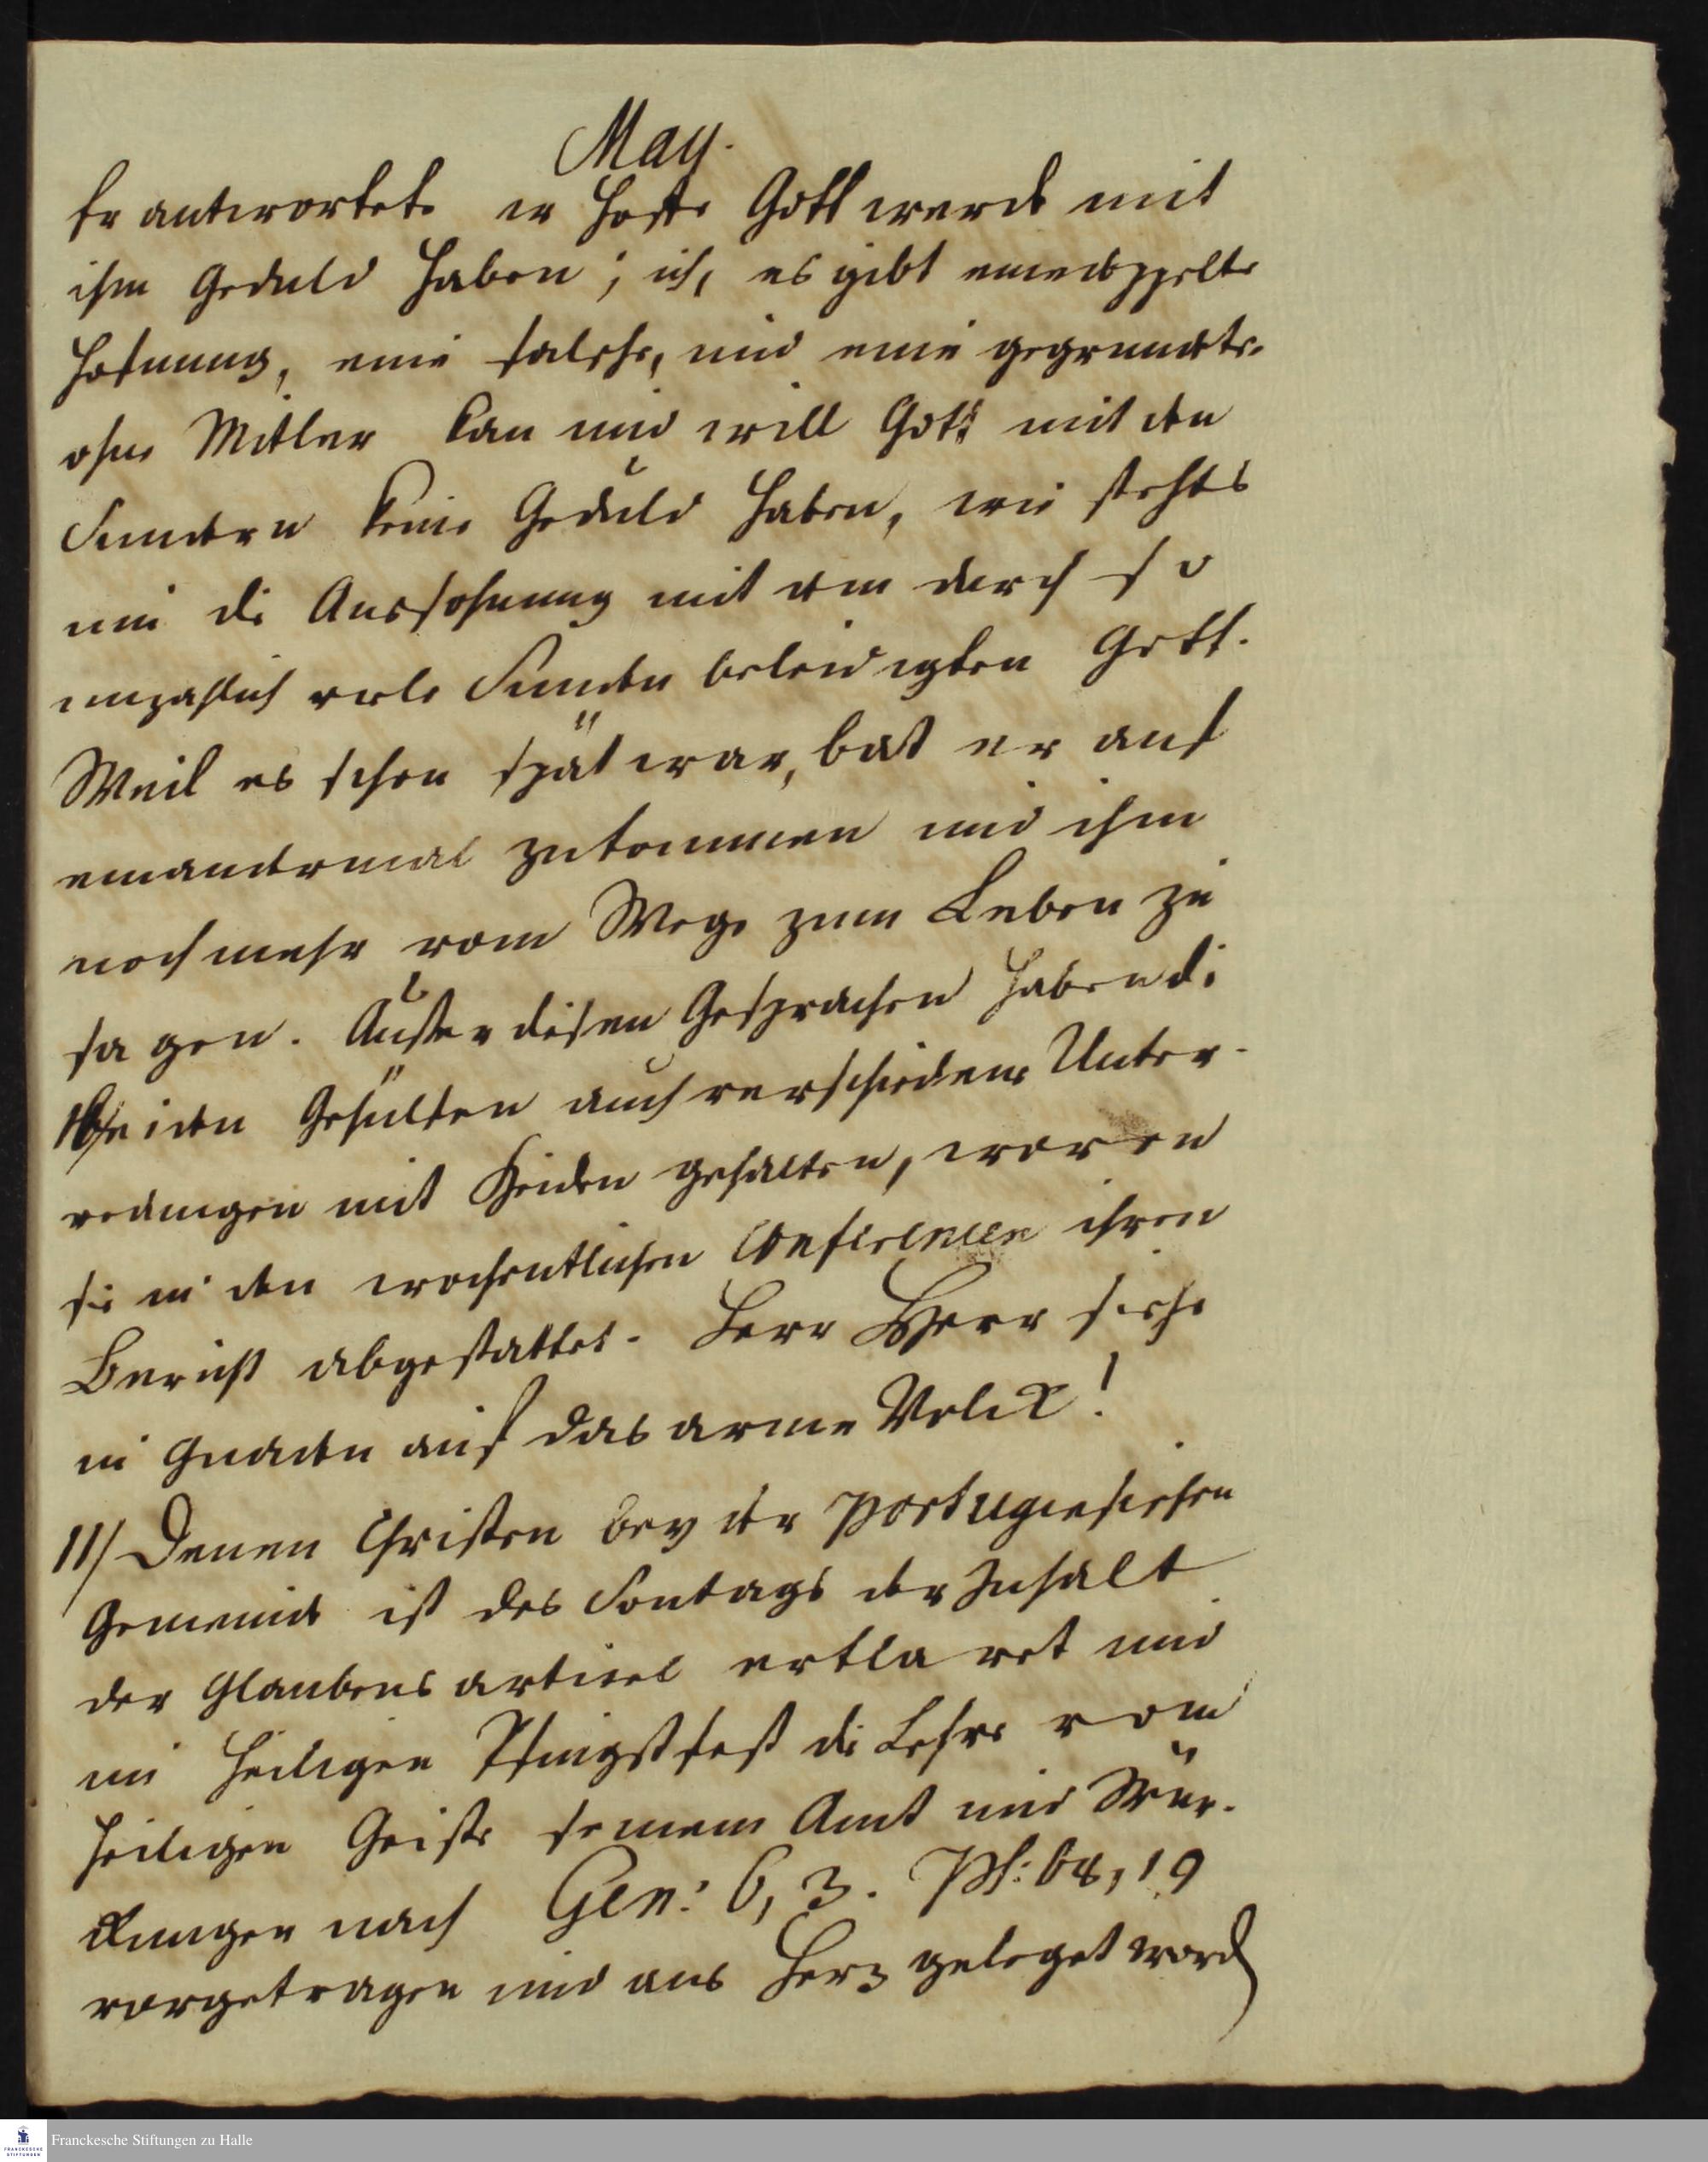 May.
Er antwortete er hoffe Gott werde mit
ihm Geduld haben; ich, es gibt eine doppelte
Hofnung, eine falsche, und eine gegrundete.
ohne Mitler kan und will Gott mit den
Sundern keine Geduld haben, wie stehts
um die Aussohnung mit dem durch so
unzahlich viele Sunden beleidigten Gott.
Weil es schon spät war, bat er auf
einandermal zukommen und ihm
noch mehr vom Wege zum Leben zu
sagen. Außer disen Gesprachen haben di
beiden Gehülfen auch verschiedene Unter-
redungen mit Heiden gehalten, wovon
sie in den wochentlichen Conferencen ihren
Bericht abgestattet. Herr Herr siehe
in Gnaden auf das arme Volck!
11/ Denen Christen bey der Portugiesischen
Gemeinde ist des Sontags der Inhalt
der Glaubensartikel erklaret und
im heiligen Pfingstfest die Lehre vom
heiligen Geiste seinem Amt und Wür-
ckungen nach Gen: 6, 3. Ps: 68, 19
vorgetragen und ans Herz geleget word
Franckesche Stiftungen zu Halle